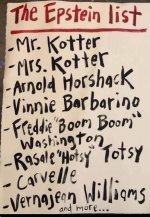 The Epstein list
- Mr. Kotter
- Mrs. Kotter
- Arnold Horshack
- Vinnie Barbarino
- Freddie "Boom Boom"
Washington
- Rosalie "Hotsy" Totsy
- Carvelle
- Vernajean Williams
and more...